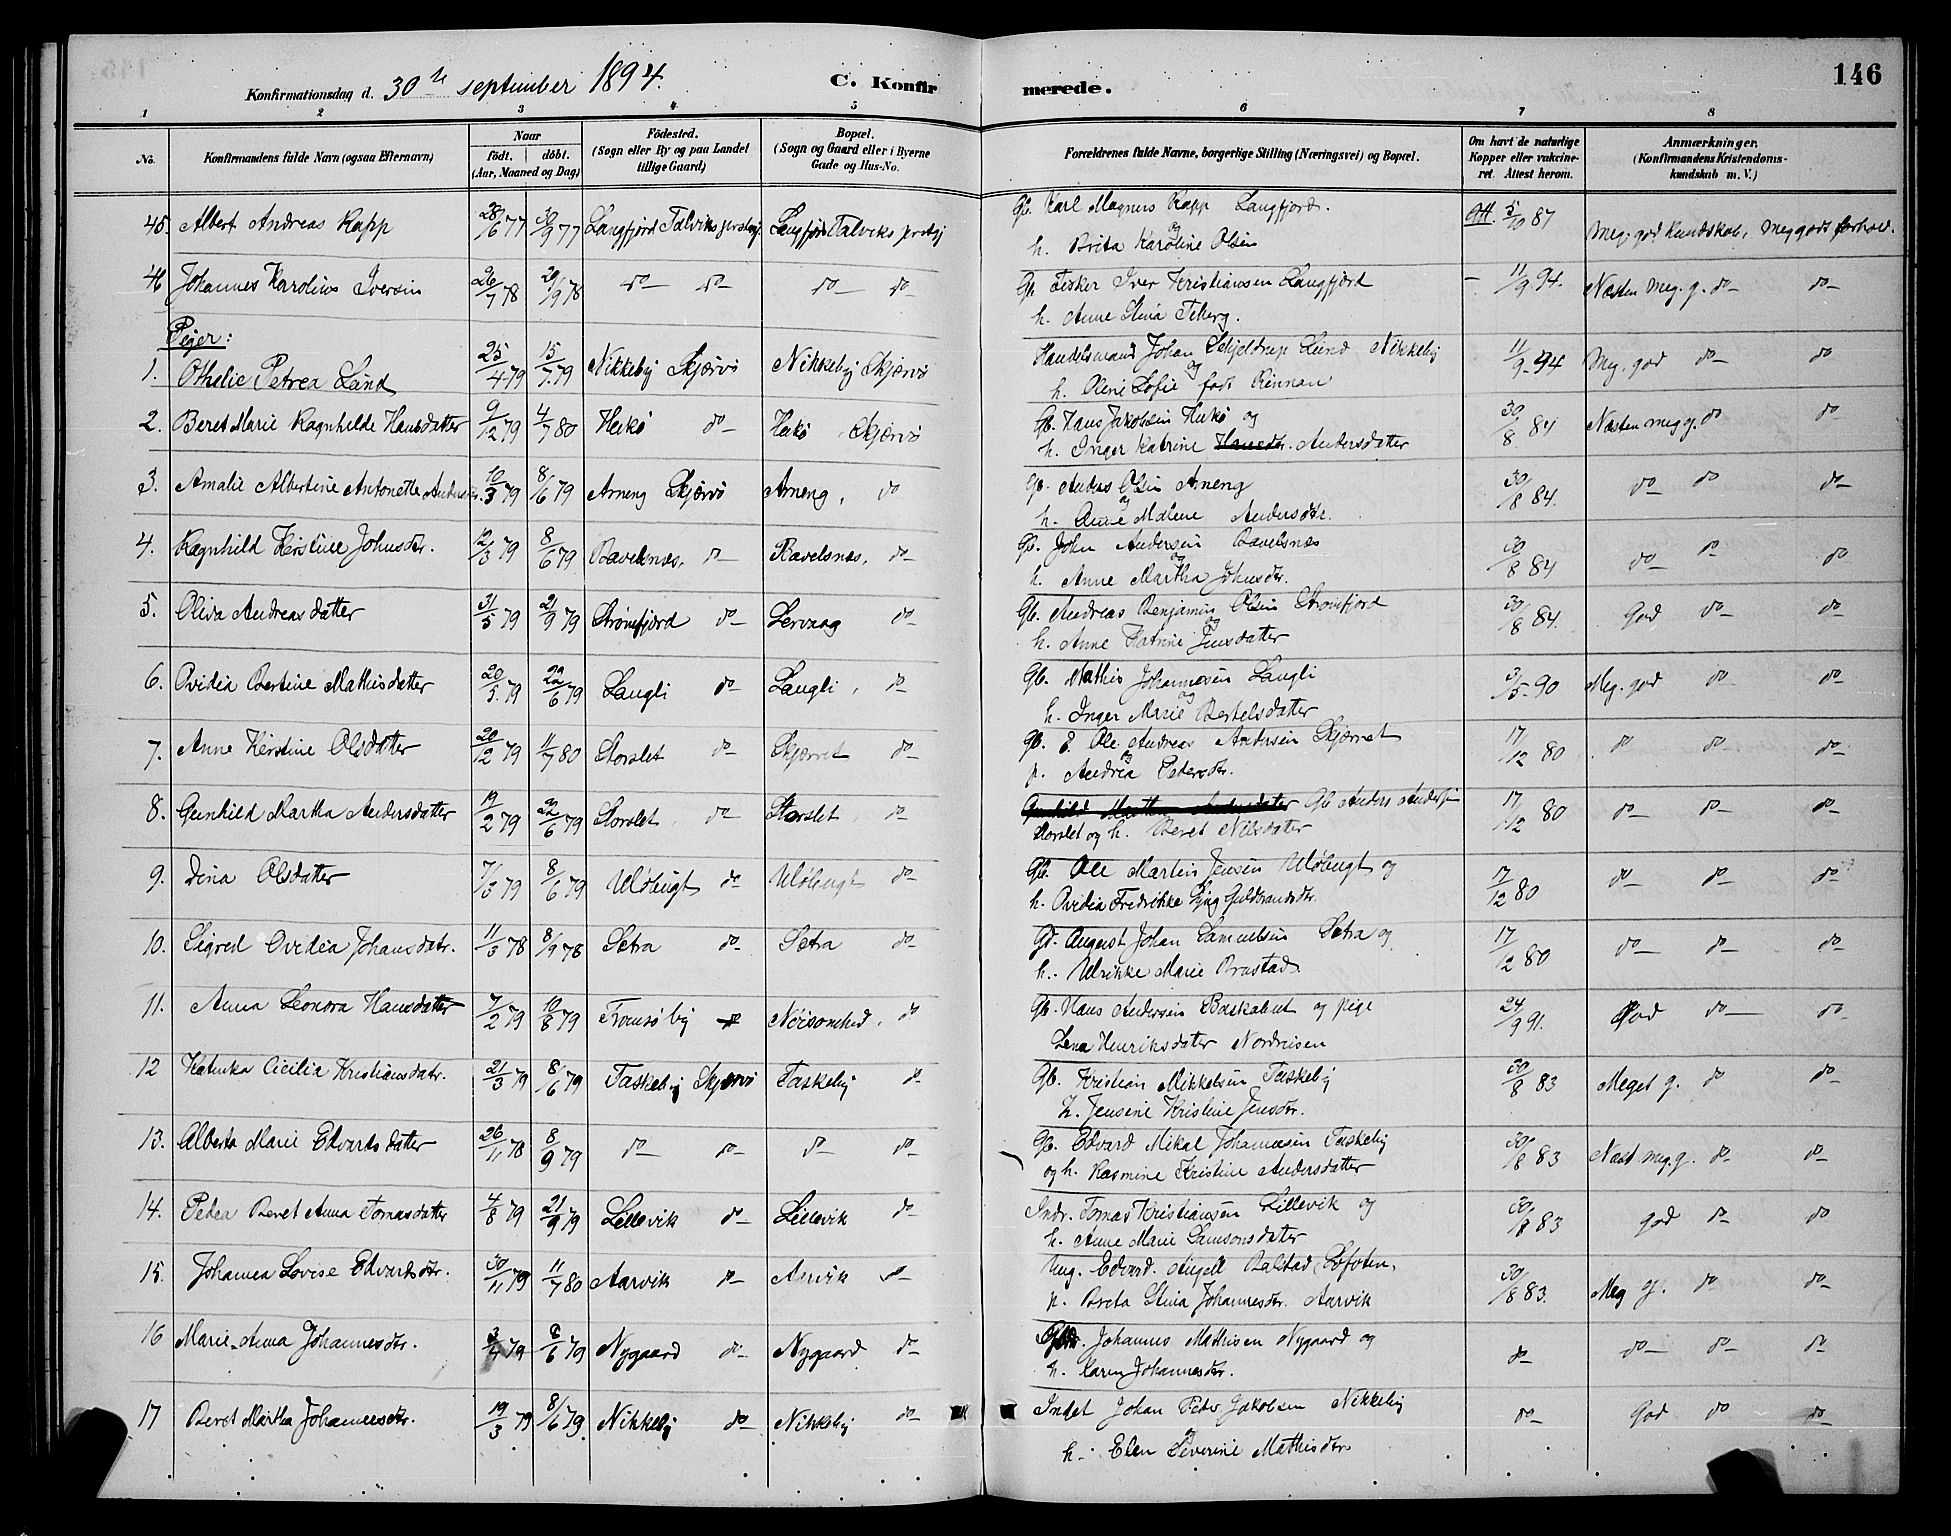 146
Konfirmationsdag d. 30te september 1894. C. Konfirmerede.
1 2 3 4 5 6 7 8
No. Konfirmandens fulde Navn (ogsaa Efternavn) Naar født. døbt. (Aar, Maaned og Dag) Fødested. (Sogn eller By og paa Landet tillige Gaard) Bopæl. (Sogn og Gaard eller i Byerne Gade og Hus-No. Forældrenes fulde Navne, borgerlige Stilling (Næringsvei) og Bopæl. Om havt de naturlige Kopper eller vakcineret. Attest herom. Anmærkninger. (Konfirmandens Kristendomskundskab m. V.)
45 Albert Andreas Rapp 28/6 77 30/9 77 Langfjord Talviks prstgj Langfjord Talviks prstgj Gb. Karl Magnus Rapp Langfjord. Att. 5/10 87 Meg. god Kundskab, meg gods forhold.
og
h. Brita Karoline Olsen
46 Johannes Karolius Iversen 26/7 78 29/9 78 do do do do Gp. Fisker Iver Kristiansen Langfjord – 11/9 94. Næsten meg. g. do do
h. Anne Stina
Piger:
1. Othelie Petrea Lund 25/4 79 15/7 79 Nikkeby Skjærvø Nikkeby Skjærvø Handelsmand Johan Schjeldrup Lund Nikkeby 11/9 94 Meg. god do do
og
h. Oline Sofie født Rinnan
2. Beret Marie Ragnhilde Hansdatter 9/12 79 4/7 80 Hakø do Hakø Skjærvø Gb. Hans Jakobsen Hakø og 30/8 84 Næsten meg g. do do
h. Inger Katrine Hansdtr. Andersdatter
3. Amalie Albertine Antonette Andersdtr. 10/3 79 8/6 79 Arneng Skjærvø Arneng, do Gp. Anders Olsen Arneng 30/8 84. do do do
og
h. Anne Malene Andersdtr.
4. Ragnhild Kerstine Johnsdtr. 12/3 79 8/6 79 Ravelsnæs, do Ravelsnæs, do Gb. John Andersen Ravelsnæs 30/8 84 do do do
og
h. Anne Martha Johnsdtr.
5. Oliva Andreasdatter 31/5 79 21/9 79 Strømfjord do Lervaag do Gb. Andreas Benjamin Olsen Strømfjord 30/8 84. God do do
og
h. Anne Katrine Jensdatter
6. Ovidia Bertine Mathisdatter 20/5 79 22/6 79 Langli do Langli, do Gb. Mathis Johannesen Langli 3/5 90 Meg. god do do
og
h. Inger Marie Bertelsdatter
7. Anne Kerstine Olsdatter 20/12 79 11/7 80 Storslet do Skjærret do Gb. E. Ole Andreas Andersen Skjærret 17/12 80 do do do
og
p. Andrea Pedersdtr.
8. Gunhild Martha Andersdatter 19/2 79 22/6 79 Storslet do Storslet do Gunhild Martha Andersdatter Gb Anders Andersen 17/12 80 do do do
Storslet og h. Beret Nilsdatter
9. Dina Olsdatter 7/3 79 8/6 79 Uløbugt do Uløbugt do Gb. Ole Martin Jensen Uløbugt og 17/12 80 do do do
h. Ovidia Fredrikke Lyng Guldbrandsdtr.
10. Sigred Ovidea Johansdatr. 11/3 78 8/9 78 Setra do Setra do Gd. August Johan Samuelsen Setra og 17/12 80 do do do
h. Ulrikke Marie Brustad
11. Anna Leonora Hansdatter 7/2 79 10/8 79 Tromsø by do do Gb. Hans Andersen Baskabut og pige 24/9 91. God do do
Lena Henriksdatter Nordreisen
12 Katinka Cicilia Kristiansdatr. 21/3 79 8/6 79 Taskeby Skjærvø Taskeby do Gb. Kristian Mikkelsen Taskeby 30/8 83 Meget g. do do
h. Jensine Kristine Jensdtr.
13. Alberta Marie Edvartsdatter 26/11 78 8/9 79 do do do do Gb. Edvard Mikal Johannesen Taskeby 30/8 83 Næst. meg. g. do do
og h. Rasmine Kristine Andersdatter
14. Petra Beret Anna Tomasdatter 4/8 79 21/9 79 Lillevik do Lillevik do Indr. Tomas Kristiansen Lillevik og 30/8 83 God do do
h. Anne Marie Samsonsdatter
15. Johanna Lovise Edvartsdtr. 30/11 79 11/7 80 Aarvik do Arvik do Ung. Edvard Angell Balstad, Lofoten, 30/8 83. Meg g. do do
p. Brita Stina Johannesdtr. Aarvik
16 Marie Anna Johannesdtr. 3/4 79 8/6 79 Nygaard do Nygaard do Johannes Mathisen Nygaard og do do do do
h. Karen Johannesdtr.
17 Beret Martha Johannesdtr. 19/3 79 8/6 79 Nikkeby do Nikkeby do Indst Johan Peder Jakobsen Nikkeby do God do do
og
h. Elen Severine Mathisdtr